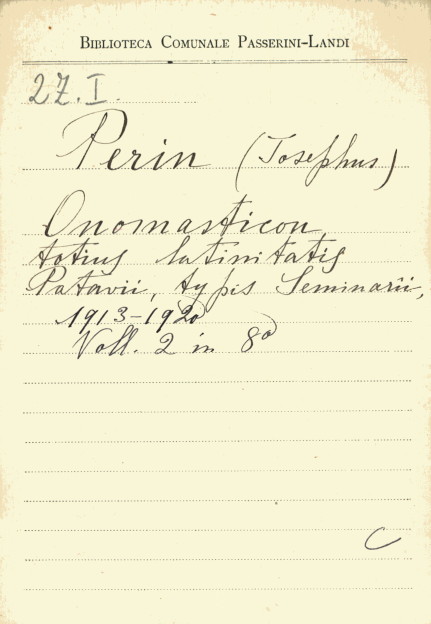 BIBLIOTECA COMUNALE PASSERINI-LANDI
2Z.I.
Perin (Josephus)
Onomasticon
totius latinitatis
Patavii, typis Seminarii,
1913-1920
Voll. 2 in 8º
C